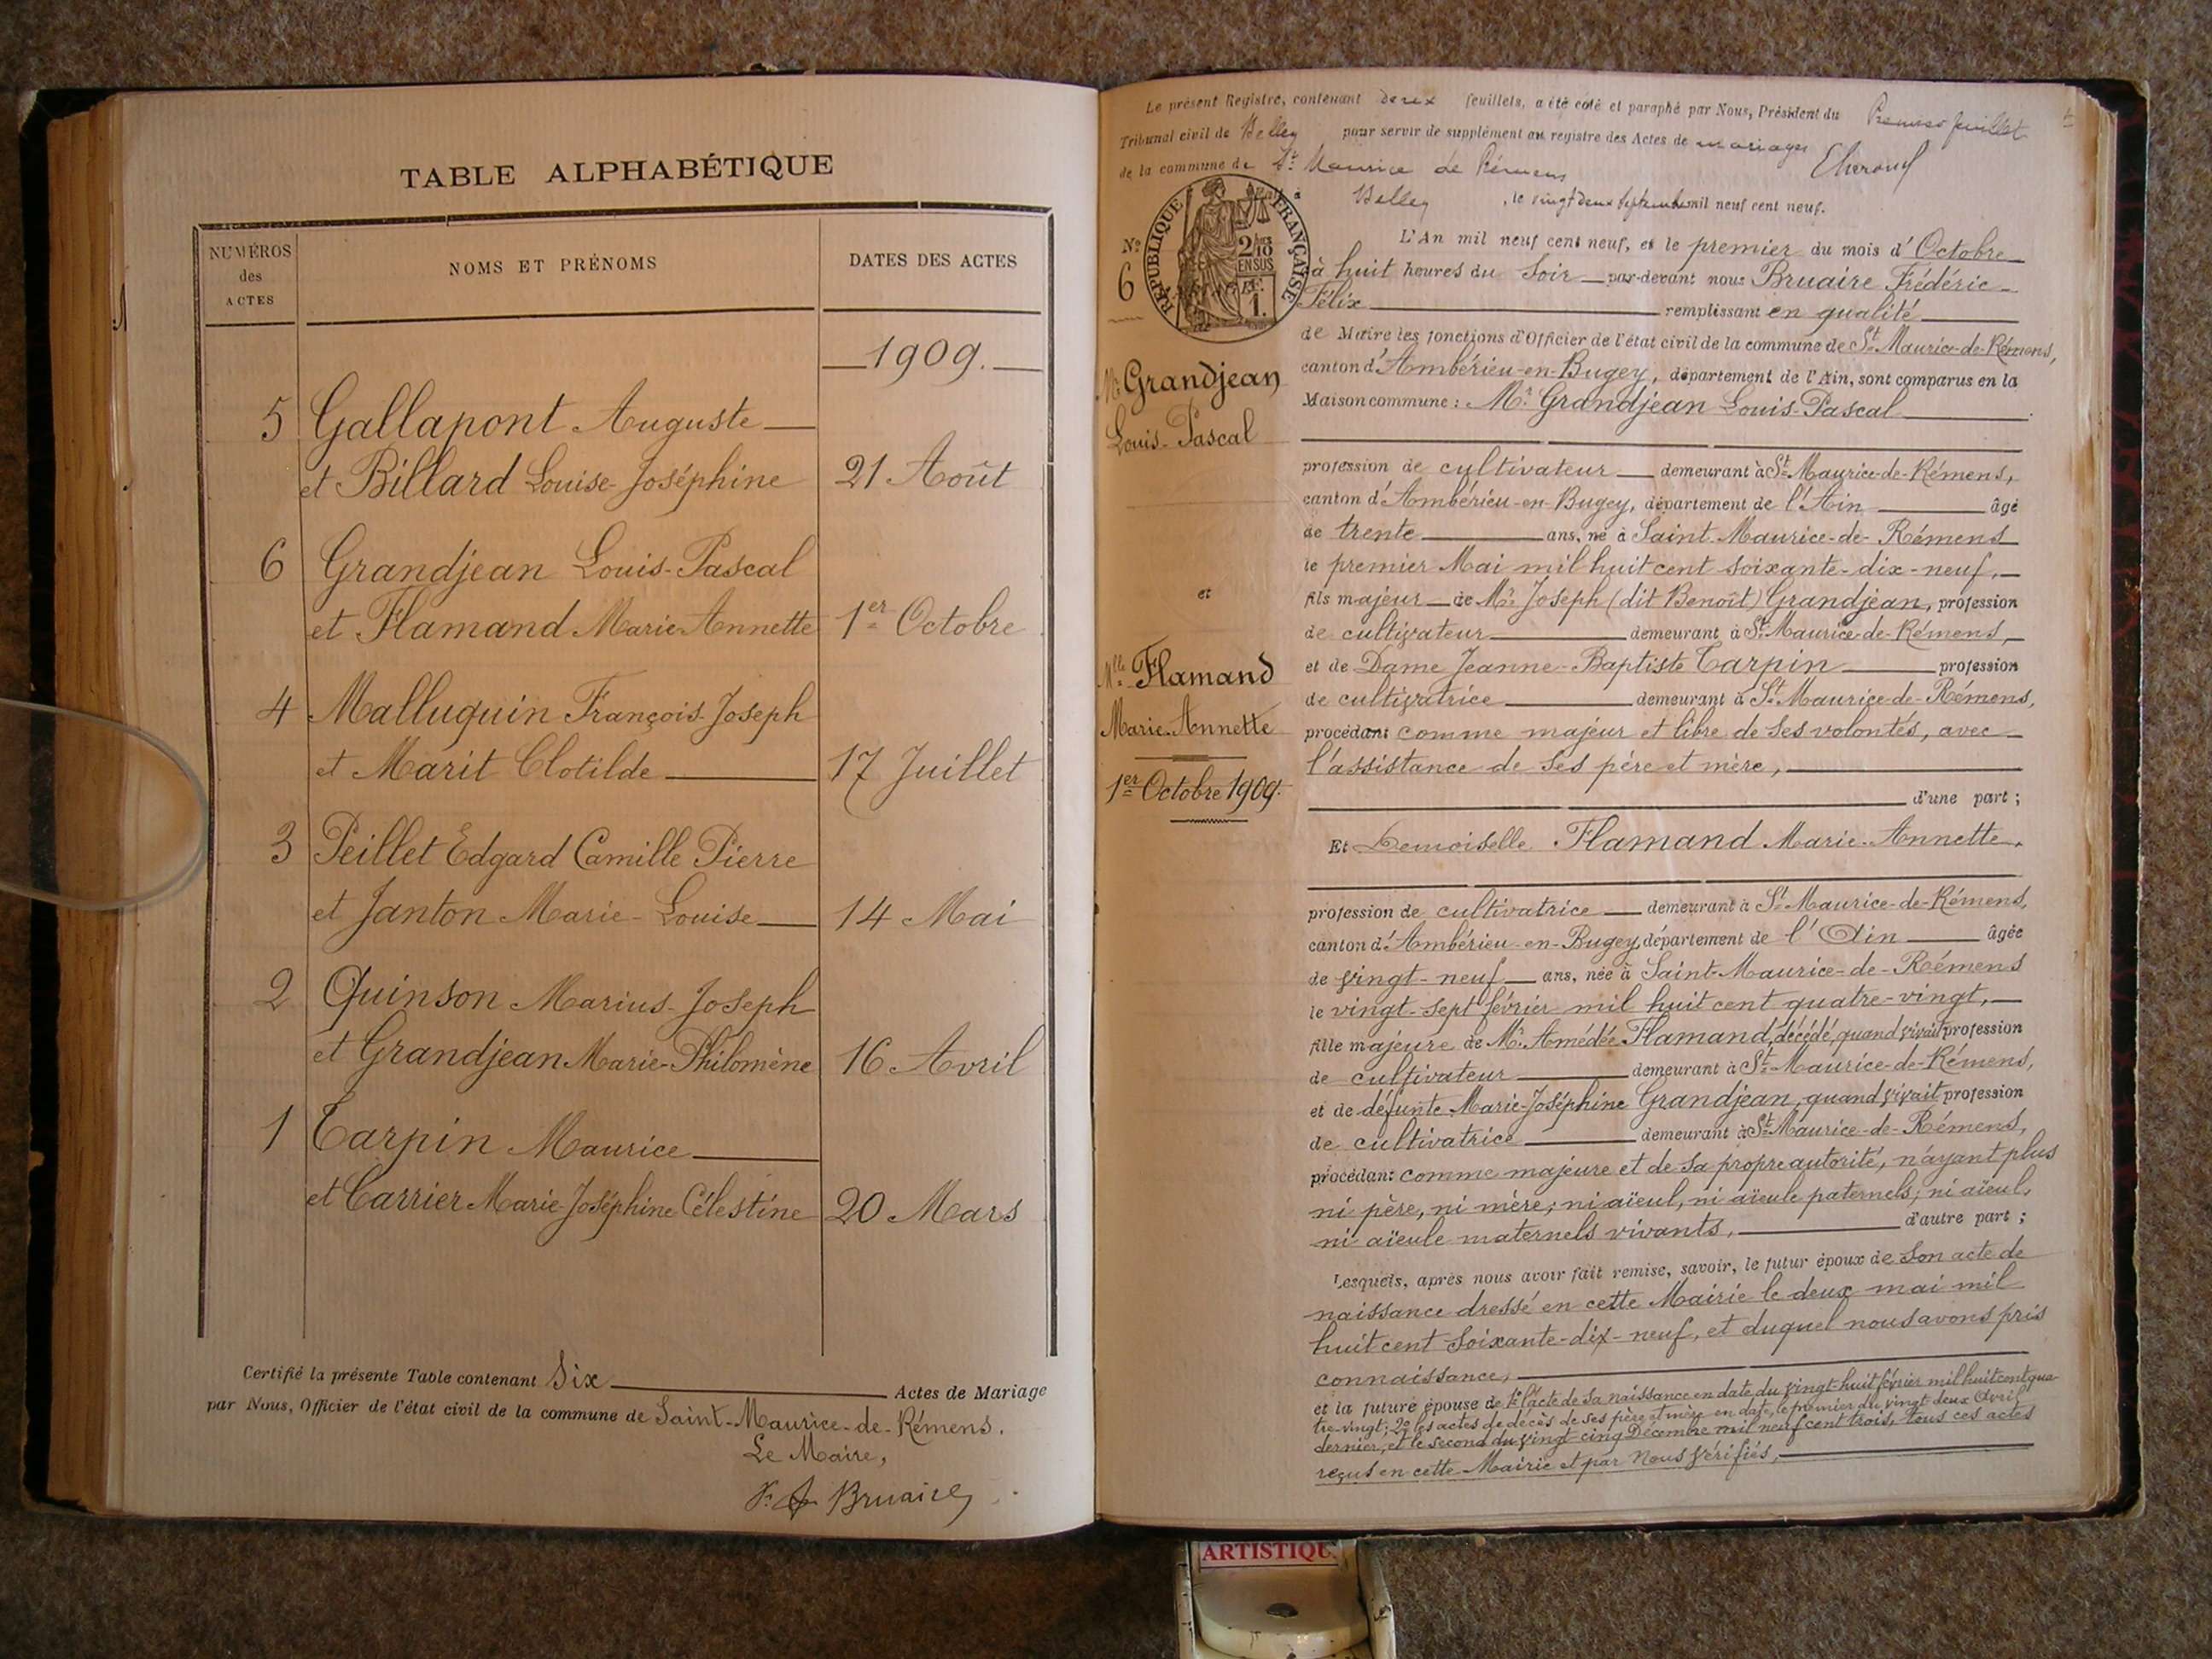 TABLE ALPHABÉTIQUE
NUMÉROS des ACTES
NOMS ET PRÉNOMS
DATES DES ACTES
1909.
5 Gallapont Auguste
et Billard Louise-Joséphine 21 Août
6 Grandjean Louis-Pascal
et Flamand Marie-Annette 1er Octobre
4 Malluquin François-Joseph
et Marit Clotilde 17 Juillet
3 Peillet Edgard Camille Pierre
et Janton Marie-Louise 14 Mai
2 Quinson Marius-Joseph
et Grandjean Marie-Philomène 16 Avril
1 Tarpin Maurice
et Carrier Marie-Joséphine Célestine 20 Mars
Certifié la présente Table contenant Six Actes de Mariage
par Nous, Officier de l'état civil de la commune de Saint-Maurice-de-Rémens.
Le Maire,
F. Bruaire
Le présent Registre, contenant deux feuillets, a été coté et paraphé par Nous, Président du
Premier feuillet
Tribunal civil de Belley pour servir de supplément au registre des Actes de mariages
de la commune de St Maurice de Rémens
Fait à Belley, le vingt deux septembre mil neuf cent neuf.
RÉPUBLIQUE FRANÇAISE
2/10 EN SUS
1.
No 6
Mr Grandjean
Louis-Pascal
et
Mlle Flamand
Marie-Annette
1er Octobre 1909.
L'An mil neuf cent neuf, et le premier du mois d'Octobre
à huit heures du Soir par-devant nous Bruaire Frédéric-
Félix remplissant en qualité
de Maire les fonctions d'Officier de l'état civil de la commune de St Maurice-de-Rémens,
canton d'Ambérieu-en-Bugey, département de l'Ain, sont comparus en la
Maison commune : Mr Grandjean Louis-Pascal
profession de cultivateur demeurant à St Maurice-de-Rémens,
canton d'Ambérieu-en-Bugey, département de l'Ain âgé
de trente ans, né à Saint-Maurice-de-Rémens
le premier Mai mil huit cent soixante-dix-neuf,
fils majeur de Mr Joseph (dit Benoît) Grandjean, profession
de cultivateur demeurant à St Maurice-de-Rémens,
et de Dame Jeanne-Baptiste Tarpin profession
de cultivatrice demeurant à St Maurice-de-Rémens,
procédant comme majeur et libre de ses volontés, avec
l'assistance de ses père et mère,
d'une part ;
Et Demoiselle Flamand Marie-Annette,
profession de cultivatrice demeurant à St Maurice-de-Rémens,
canton d'Ambérieu-en-Bugey, département de l'Ain âgée
de vingt-neuf ans, née à Saint-Maurice-de-Rémens
le vingt-sept février mil huit cent quatre-vingt,
fille majeure de Mr Amédée Flamand, décédé, quand vivait profession
de cultivateur demeurant à St Maurice-de-Rémens,
et de défunte Marie-Joséphine Grandjean, quand vivait profession
de cultivatrice demeurant à St Maurice-de-Rémens,
procédant comme majeure et de sa propre autorité, n'ayant plus
ni père, ni mère ; ni aïeul, ni aïeule paternels ; ni aïeul,
ni aïeule maternels vivants, d'autre part ;
Lesquels, après nous avoir fait remise, savoir, le futur époux de son acte de
naissance dressé en cette Mairie le deux mai mil
huit cent soixante-dix-neuf, et duquel nous avons pris
connaissance,
et la future épouse de 1° l'acte de sa naissance en date du vingt-huit février mil huit cent qua-
tre-vingt ; 2° les actes de décès de ses père et mère en date, le premier du vingt deux Avril
dernier, et le second du vingt cinq Décembre mil neuf cent trois, tous ces actes
reçus en cette Mairie et par Nous vérifiés,
ARTISTIQU